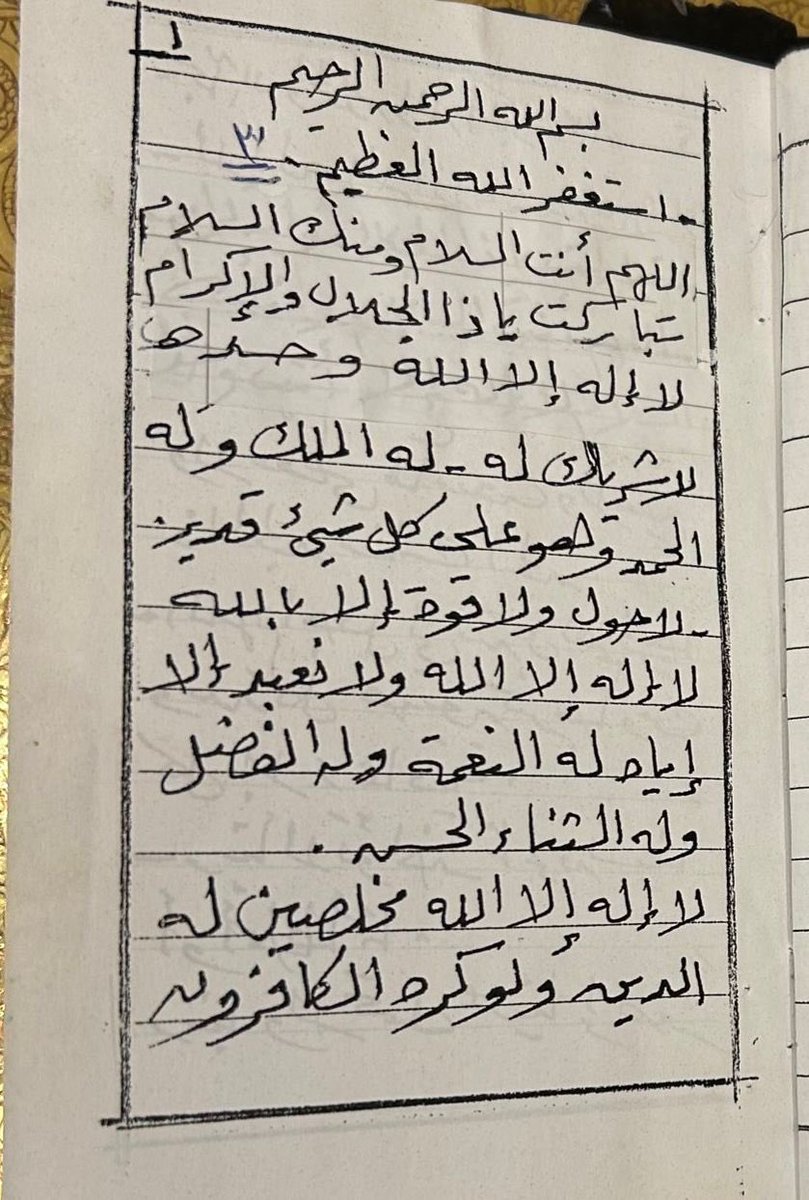 ١
بسم الله الرحمن الرحيم
- استغفر الله العظيم . ٣
اللهم أنت السلام ومنك السلام
تباركت ياذا الجلال والإكرام
لا إله إلا الله وحده
لا شريك له - له الملك وله
الحمد وهو على كل شيئ قدير .
- لا حول ولا قوة إلا بالله
لا إله إلا الله ولا نعبد إلا
إياه له النعمة وله الفضل
وله الثناء الحسن .
لا إله إلا الله مخلصين له
الدين ولو كره الكافرون